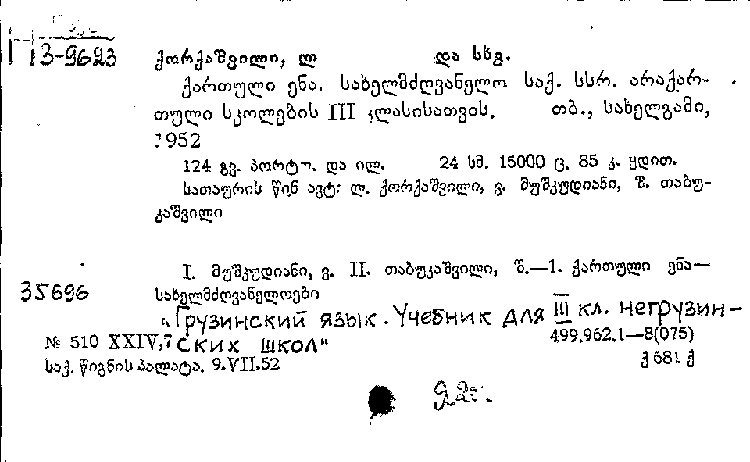 13-9623
ქორქაშვილი, ლ და სხვ.
ქართული ენა. სახელმძღვანელო საქ. სსრ. არაქარ-
თული სკოლების III კლასისათვის. თბ., სახელგამი,
1952
124 გვ. პორტრ. და ილ. 24 სმ. 15000 ც. 85 კ. ყდით.
სათაურის წინ ავტ: ლ. ქორქაშვილი, ვ. მუშკუდიანი, შ. თაბუ-
კაშვილი
I. მუშკუდიანი, ვ. II. თაბუკაშვილი, შ.—1. ქართული ენა—
35696 სახელმძღვანელოები
„Грузинский язык. Учебник для III кл. негрузин-
ских школ"
№ 510 XXIV,7 499.962.1—8(075)
საქ. წიგნის პალატა. 9.VII.52 ქ 681 ქ